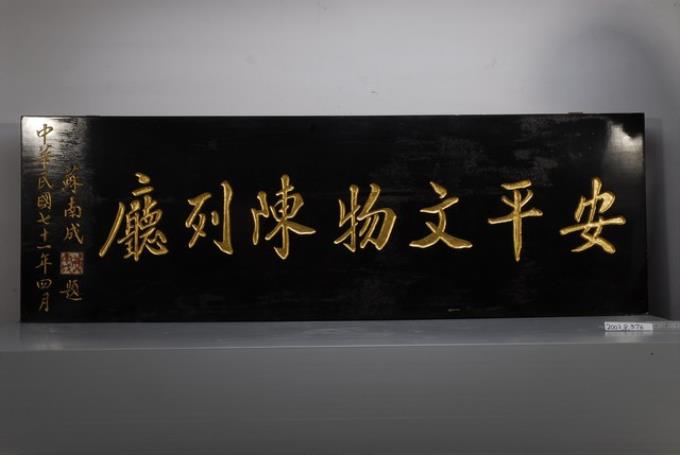 安平文物陳列廳
蘇南成題
中華民國七十一年四月